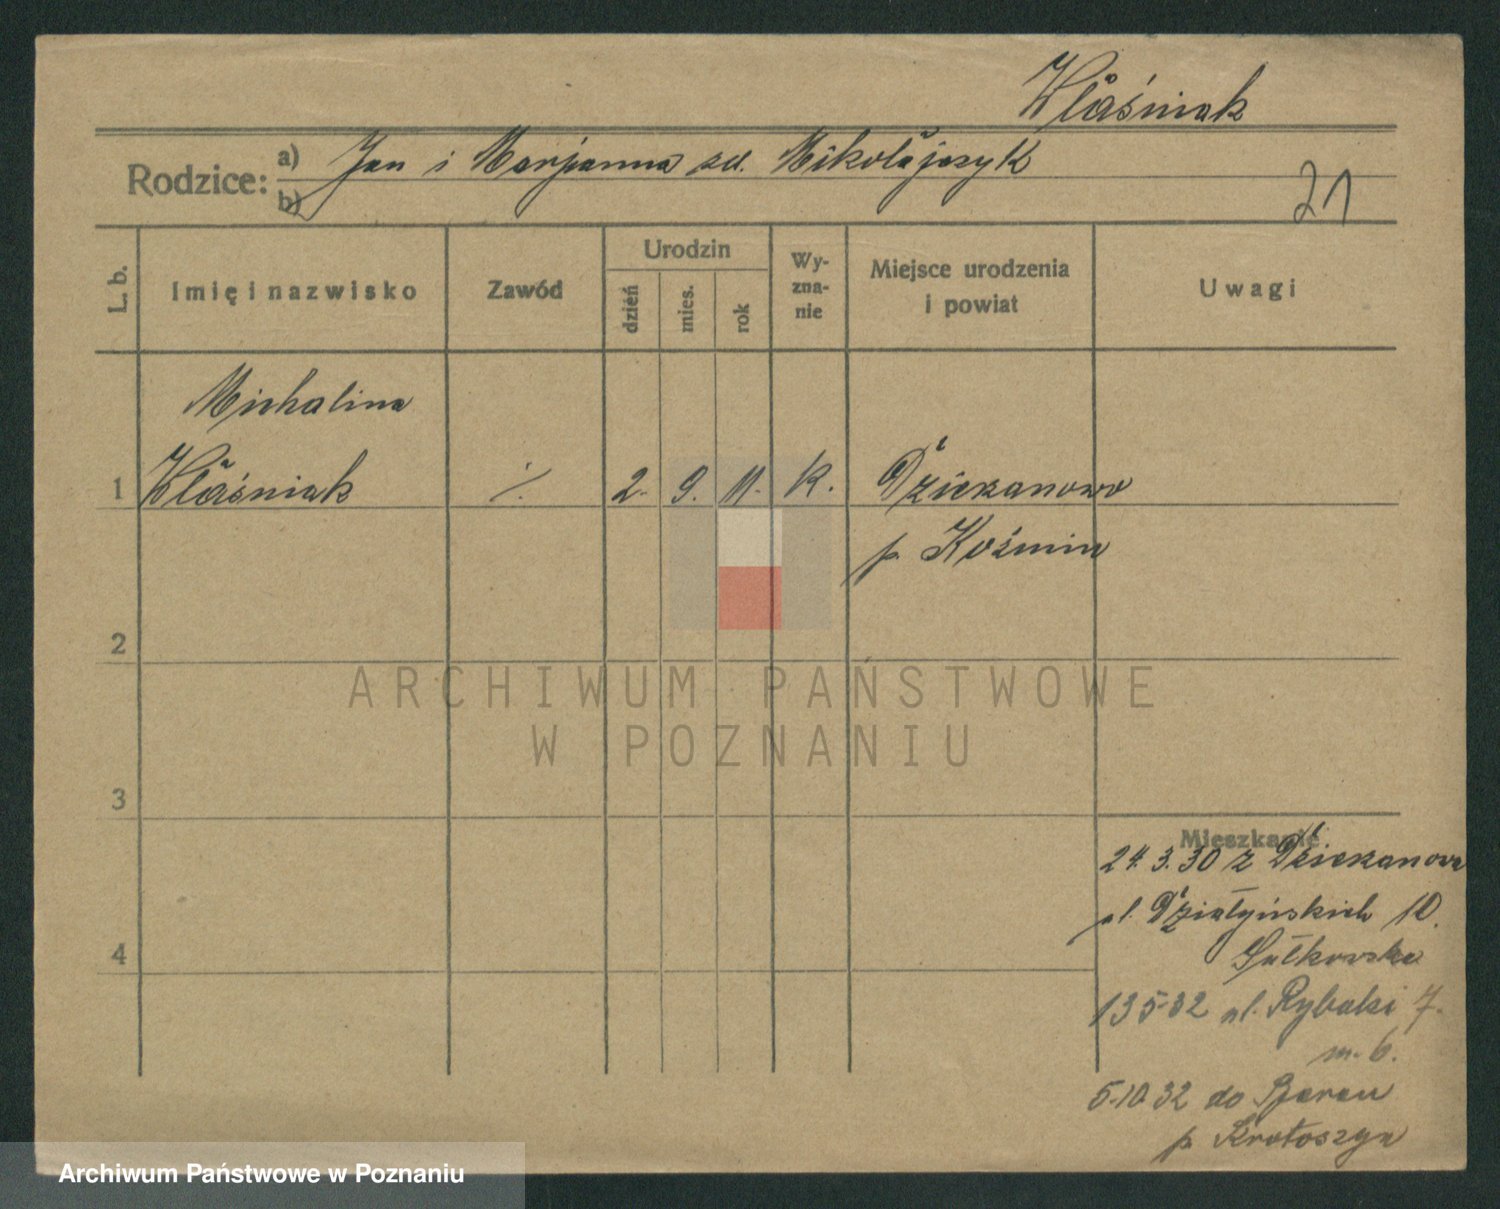 Właśniak
Rodzice: a) Jan i Marjanna zd. Mikołajczyk
b)
21
L. b.
Imię i nazwisko
Zawód
Urodzin
dzień
mies.
rok
Wy-
zna-
nie
Miejsce urodzenia
i powiat
Uwagi
Michalina
1 Właśniak ./. 2. 9. 11. K. Dziekanowo
p. Koźmin
2
3
4
Mieszkanie
24.3.30 z
ul. Działyńskich 10.
Sułkowska
13 5-32 ul. Rybaki 7.
m. 6.
5-10 32 do
p. Krotoszyn
ARCHIWUM PAŃSTWOWE
W POZNANIU
Archiwum Państwowe w Poznaniu